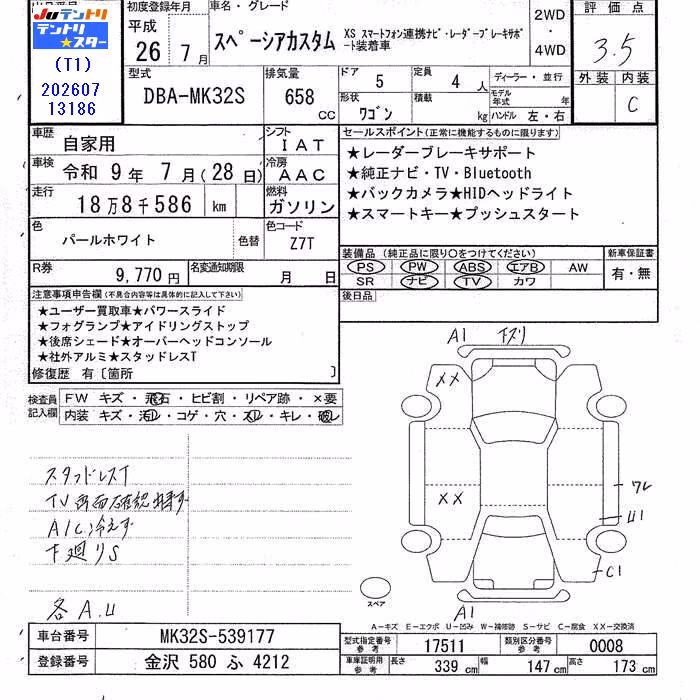 Juテントリ
テントリ★スター
(T1)
202607
13186
初度登録年月
平成
26年 7月
車名・グレード
スペーシアカスタム
XS スマートフォン連携ナビ・レーダーブレーキサポート装着車
2WD
・
4WD
評価点
3.5
外装 内装
C
型式
DBA-MK32S
排気量
658 CC
ドア 5
定員 4 人
形状 ワゴン
積載 kg
ディーラー・並行
モデル年式 年
ハンドル 左・右
車歴 自家用
シフト IAT
車検 令和 9年 7月(28日)
冷房 AAC
走行 18万8千586 km
燃料 ガソリン
色 パールホワイト 色替
色コード Z7T
R券 9,770円
名変通知期限 月 日
セールスポイント(正常に機能するものに限ります)
★レーダーブレーキサポート
★純正ナビ・TV・Bluetooth
★バックカメラ★HIDヘッドライト
★スマートキー★プッシュスタート
装備品(純正品に限り○をつけてください)
PS PW ABS エアB AW
SR ナビ TV カワ
新車保証書
有・無
後日品
注意事項申告欄(不具合内容等は具体的に記入して下さい)
★ユーザー買取車★パワースライド
★フォグランプ★アイドリングストップ
★後席シェード★オーバーヘッドコンソール
★社外アルミ★スタッドレスT
修復歴 有〔箇所 〕
検査員記入欄
FW キズ・飛石・ヒビ割・リペア跡・×要
内装 キズ・汚レ・コゲ・穴・スレ・キレ・破レ
スタッドレスT
TV画面確認出来ず
A/C冷えず
下廻りS
各A.U
A1 下ズリ
XX
XX
ワレ
U1
C1
A1
スペア
A-キズ E-エクボ U-凹み W-補修跡 S-サビ C-腐食 XX-交換済
車台番号 MK32S-539177
登録番号 金沢 580 ふ 4212
型式指定番号 参考 17511
類別区分番号 参考 0008
車庫証明用 参考 長さ 339 cm 幅 147 cm 高さ 173 cm